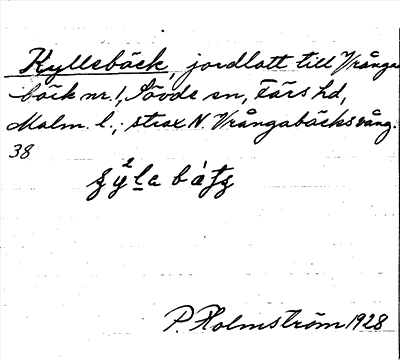 Kyllebäck, jordlott till Vrånga-
bäck nr. 1, Sövde sn, Färs hd,
Malm. l., strax N. Vrångabäcksvång.
38
P. Holmström 1928